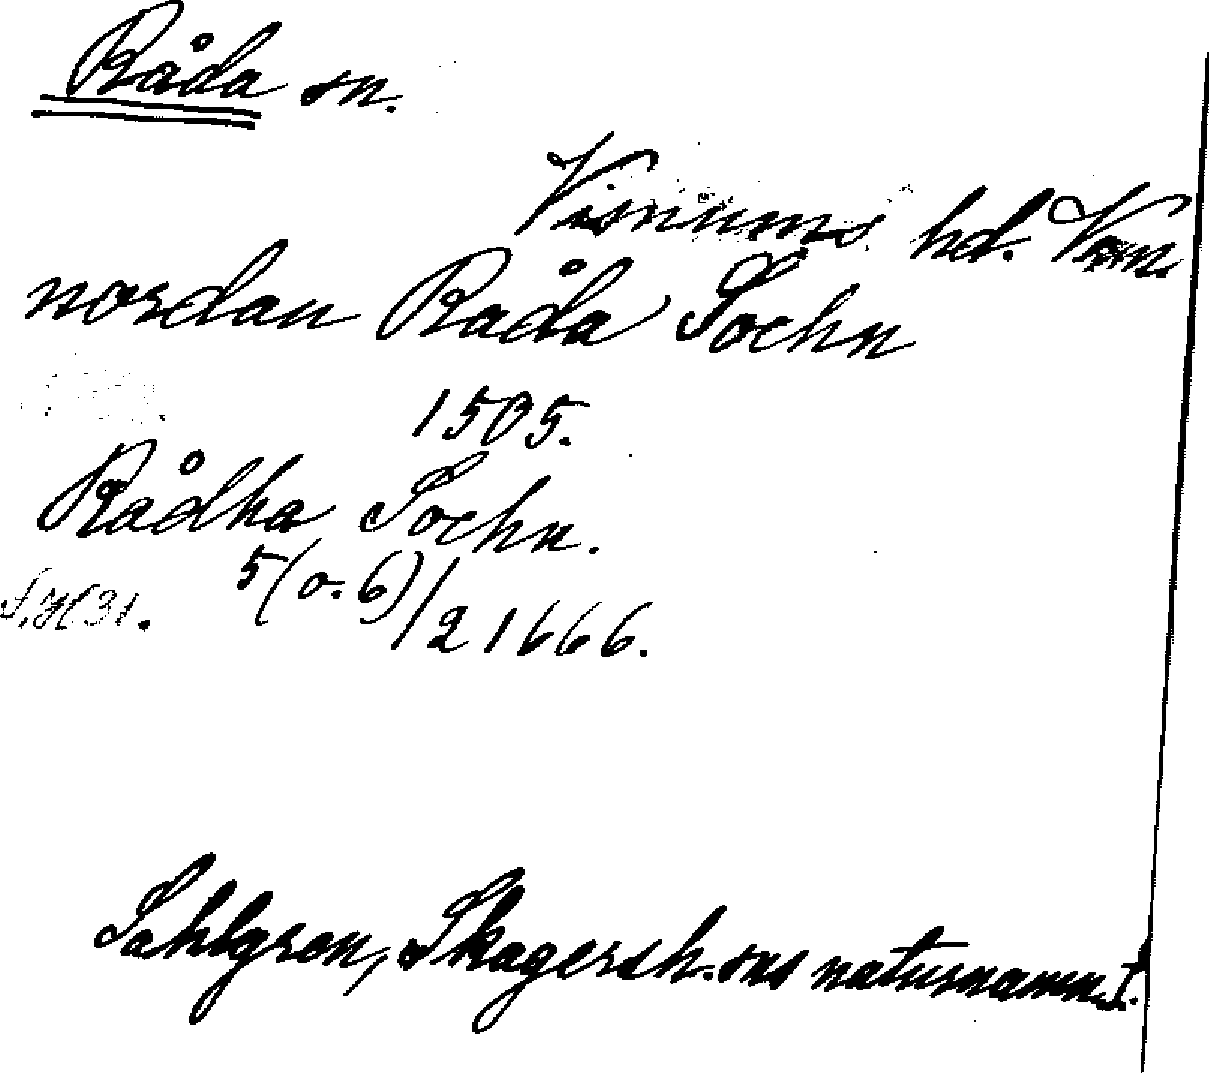 Råda sn.
Visnums hd. Vrm.
nordan Råda Sochn
1505.
Rådha Sochn.
5(o. 6)/2 1666.
S. 31.
Sahlgren, Skagersh. sns naturnamn I.